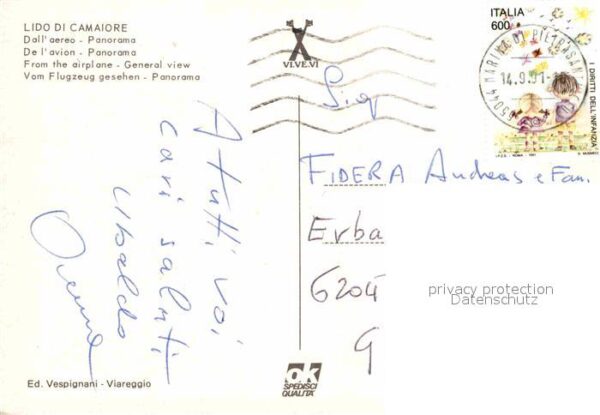 LIDO DI CAMAIORE
Dall'aereo - Panorama
De l'avion - Panorama
From the airplane - General view
Vom Flugzeug gesehen - Panorama
VI.VE.VI
ITALIA
600
I DIRITTI DELL'INFANZIA
55044 MARINA DI PIETRASANTA
14.9.91
Sig
FIDERA Andreas e Fam.
Erba
6204
G
A tutti voi
cari saluti
Ubaldo
privacy protection
Datenschutz
Ed. Vespignani - Viareggio
ok
SPEDISCI
QUALITÀ